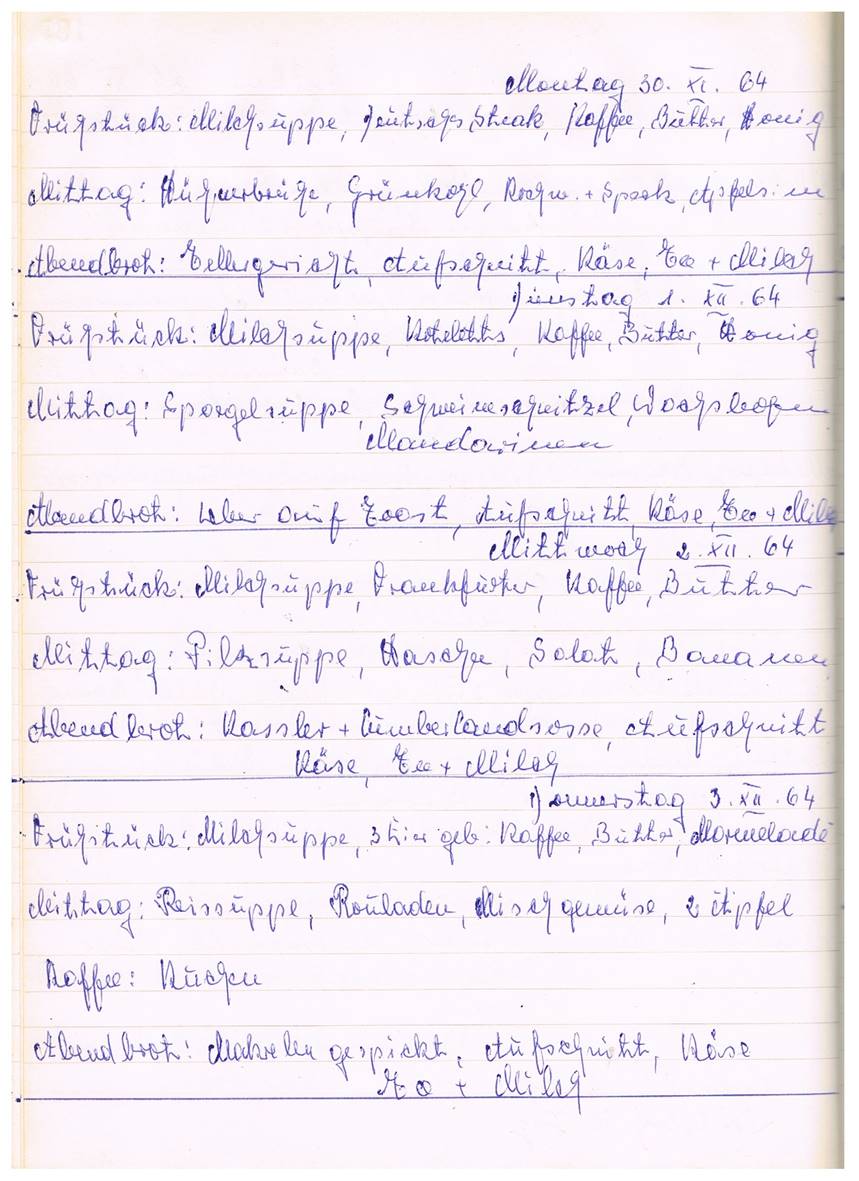 Montag 30. XI. 64
Frühstück: Milchsuppe, Deutsches Steak, Kaffee, Butter, Honig
Mittag: Hühnerbrühe, Grünkohl, Kochw. + Speck, Apfelsin
Abendbrot: Tellergericht, Aufschnitt, Käse, Tee + Milch
Dienstag 1. XII. 64
Frühstück: Milchsuppe, Koteletts, Kaffee, Butter, Honig
Mittag: Spargelsuppe, Schweineschnitzel, Wachsbohnen
Mandarinen
Abendbrot: Leber auf Toast, Aufschnitt, Käse, Tee + Milch
Mittwoch 2. XII. 64
Frühstück: Milchsuppe, Frankfurter, Kaffee, Butter
Mittag: Pilzsuppe, Haschee, Salat, Bananen
Abendbrot: Kassler + Cumberlandsosse, Aufschnitt
Käse, Tee + Milch
Donnerstag 3. XII. 64
Frühstück: Milchsuppe, 3 Eier geb: Kaffee, Butter, Marmelade
Mittag: Reissuppe, Rouladen, Mischgemüse, 2 Äpfel
Kaffee: Kuchen
Abendbrot: Makrelen gespickt, Aufschnitt, Käse
Tee + Milch